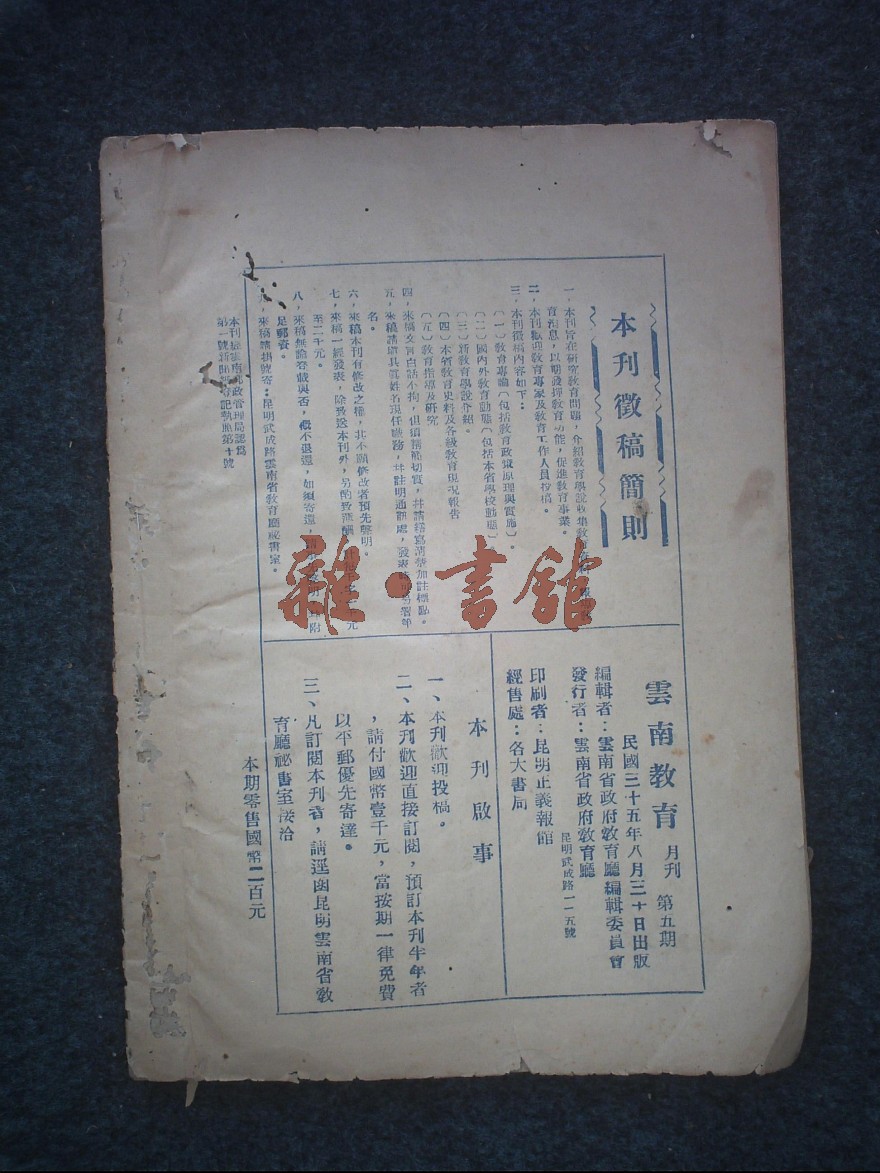 本刊徵稿簡則
一．本刊旨在研究教育問題，介紹教育學說收集教育
育消息，以期發揮教育功能，促進教育事業。
二．本刊歡迎教育專家及教育工作人員投稿。
三．本刊徵稿內容如下：
（一）教育專論（包括教育政策原理與實施）。
（二）國內外教育動態（包括本省學校動態）
（三）新教育學說介紹。
（四）本省教育史料及各級教育現況報告
（五）教育指導及研究
四．來稿文言白話不拘，但須精簡切實，并請繕寫清楚加註標點。
五．來稿請書具真姓名現任職務，并註明通訊處，發表時
名。
六．來稿本刊有修改之權，其不願修改者預先聲明。
七．來稿一經發表，除致送本刊外，另酌致薄酬
至二千元。
八．來稿無論登載與否，概不退還，如須寄還，請
足郵資。
九．來稿請掛號寄：昆明武成路雲南省教育廳祕書室。
本刊經雲南郵政管理局認為
第一類新聞紙登記執照第十號
雲南教育 月刊 第五期
民國三十五年八月三十日出版
編輯者：雲南省政府教育廳編輯委員會
發行者：雲南省政府教育廳
昆明武成路一一五號
印刷者：昆明正義報館
經售處：各大書局
本刊啟事
一、本刊歡迎投稿。
二、本刊歡迎直接訂閱，預訂本刊半年者
，請付國幣壹千元，當按期一律免費
以平郵優先寄達。
三、凡訂閱本刊者，請逕函昆明雲南省教
育廳祕書室接洽
本期零售國幣二百元
雜·書館